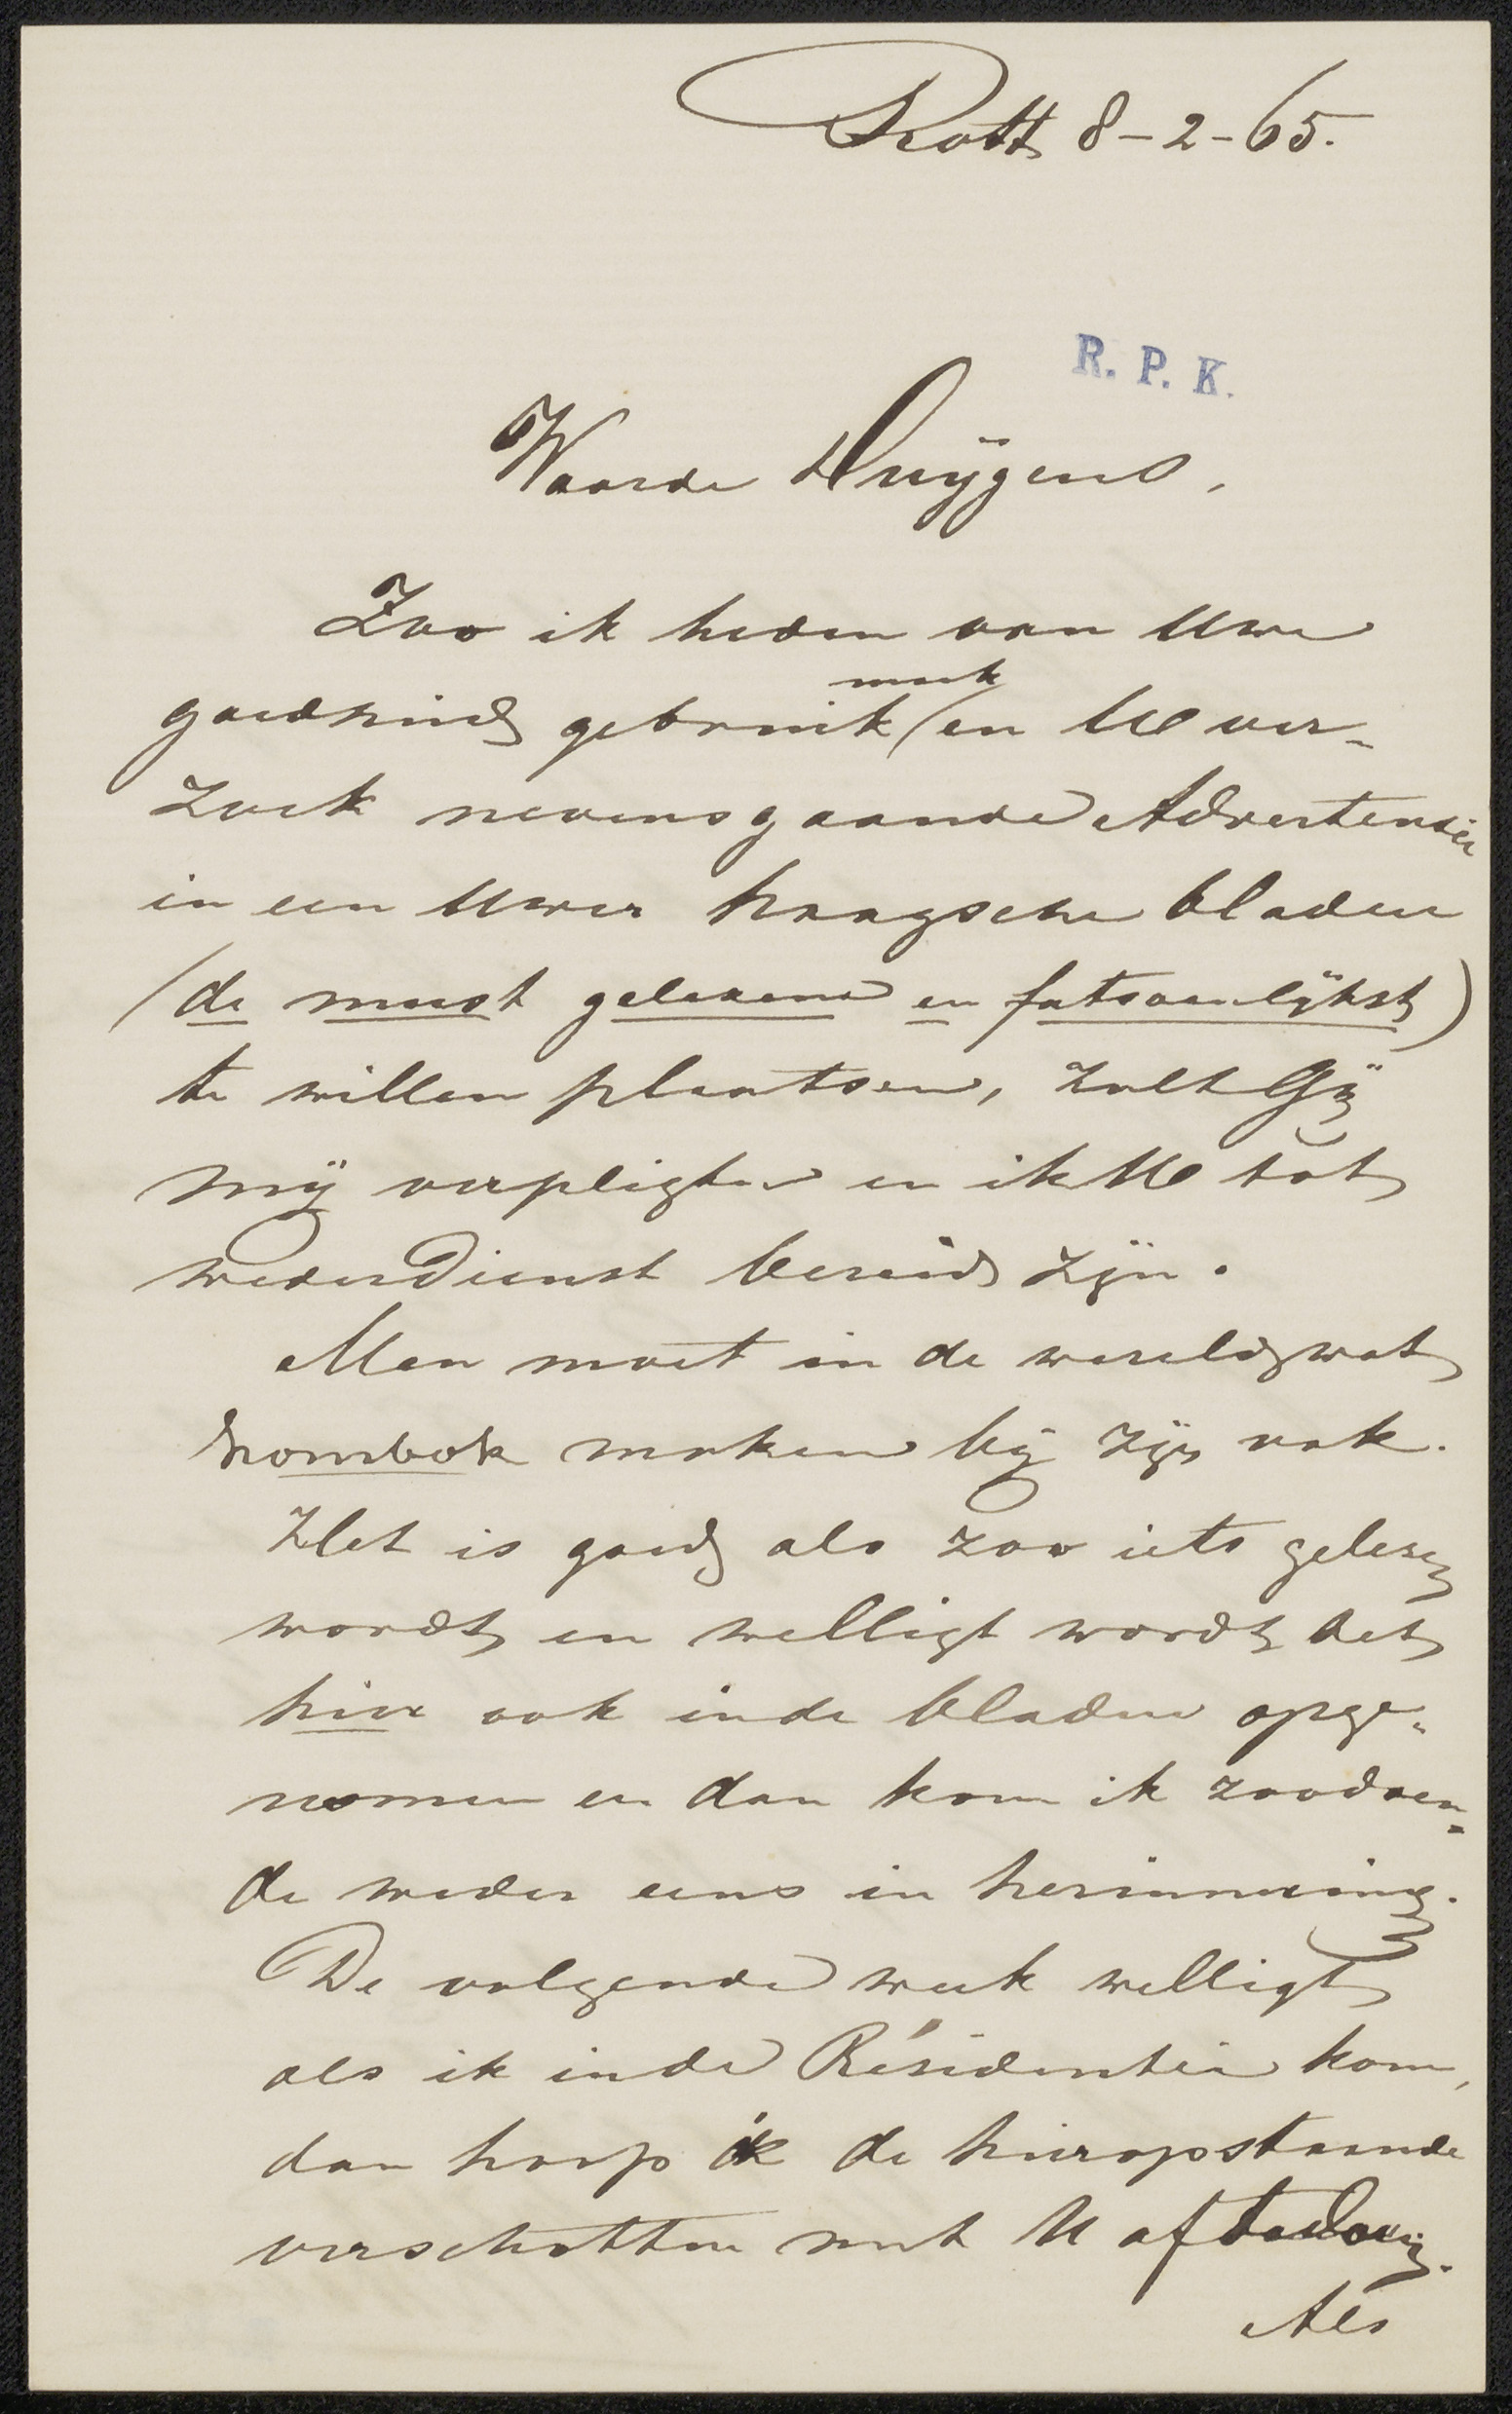 Rott 8-2-65.
R. P. K.
Waarde Huÿgens,
Zoo ik heden van Uwe
goedheid gebruik maak en UE ver-
zoek nevensgaande Advertensie
in een Uwer haagsche bladen
(de meest gelezene en fatsoenlÿkst)
te willen plaatsen, zult Gÿ
mÿ verpligten en ik UE tot
wederdienst bereid zÿn.
Men moet in de wereld wat
hombok maken bÿ zÿn vak.
Het is goed als zoo iets gelezen
wordt en welligt wordt het
hier ook in de bladen opge-
nomen en dan kom ik zoodoen-
de weder eens in herinnering.
De volgende week welligt
als ik in de Résidentie kom,
dan hoop ik de hieropstaande
verschotten met U af te doen.
Als